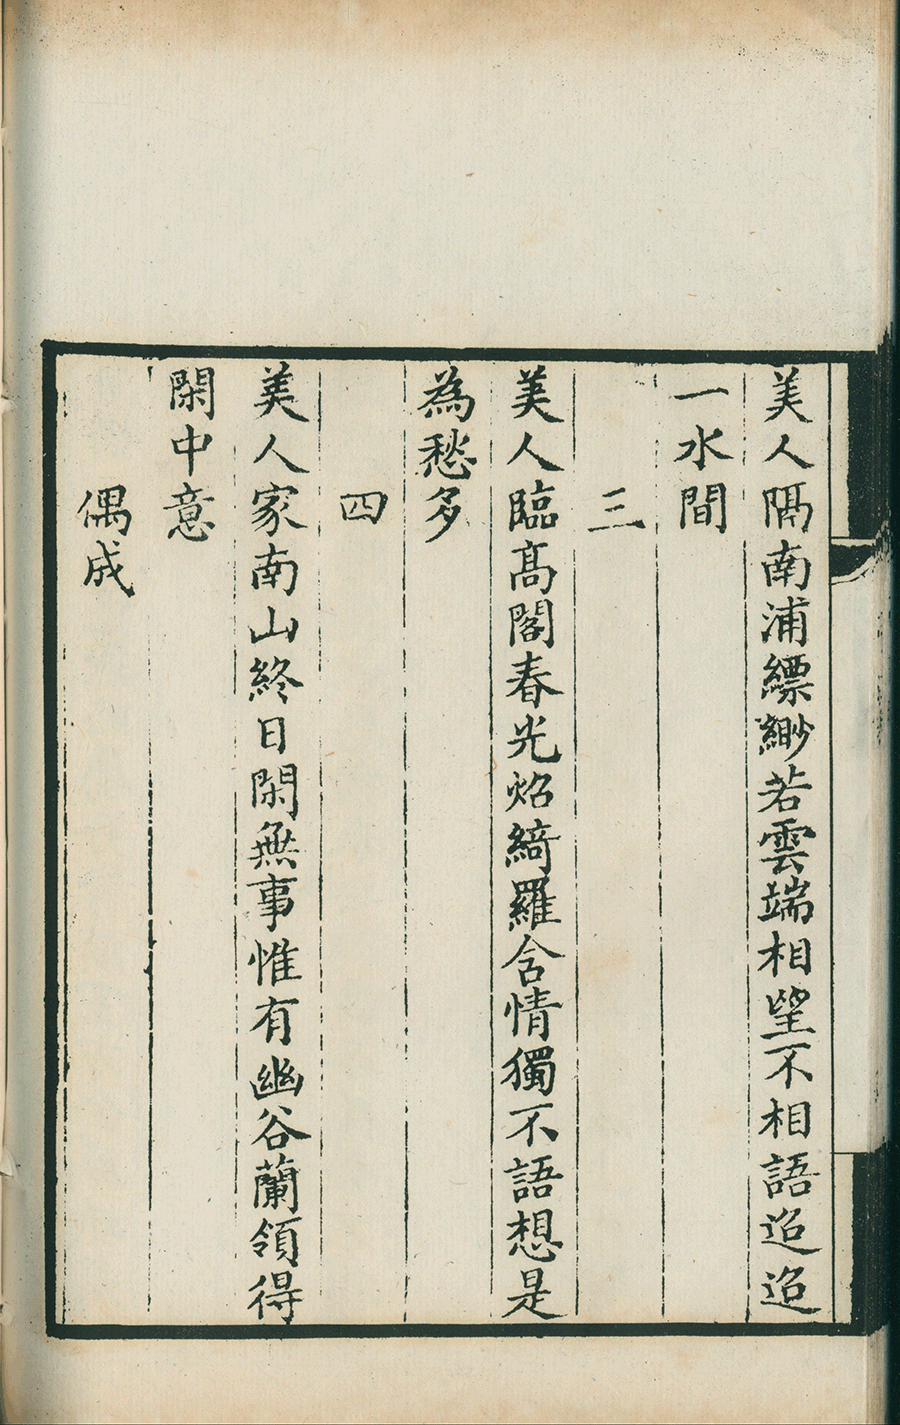 美人隔南浦縹緲若雲端相望不相語迢迢
一水間
三
美人臨髙閣春光炤綺羅含情獨不語想是
為愁多
四
美人家南山終日閑無事惟有幽谷蘭領得
閑中意
偶成